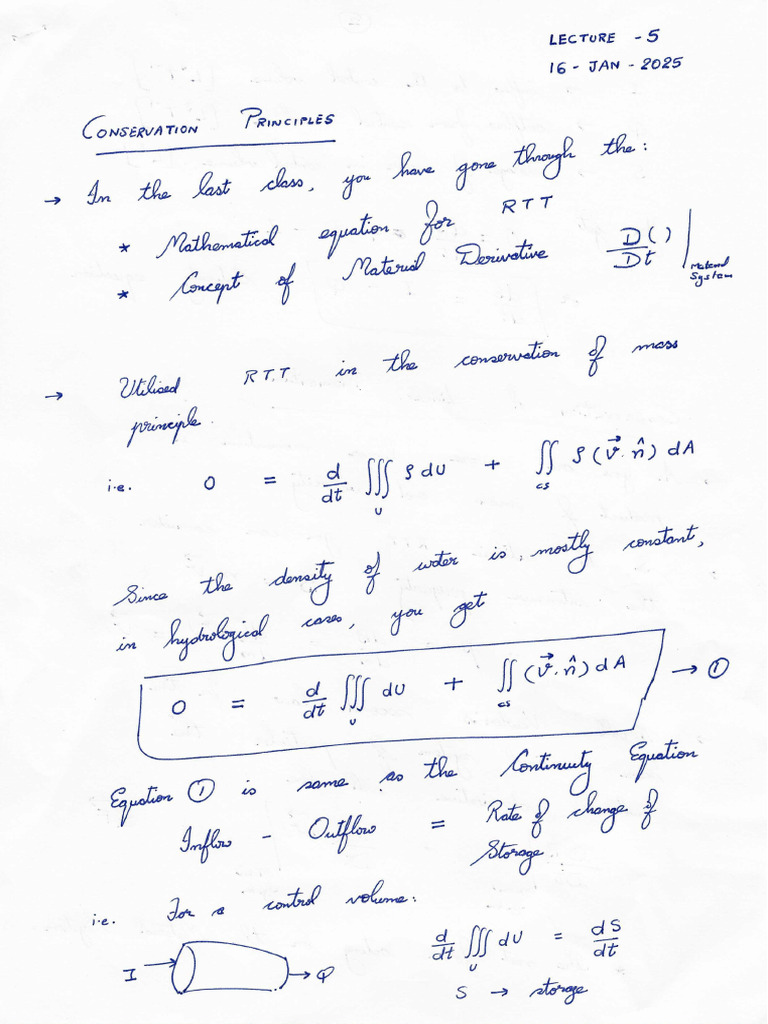 LECTURE - 5
16 - JAN - 2025
CONSERVATION PRINCIPLES
→ In the last class, you have gone through the:
* Mathematical equation for RTT
* Concept of Material Derivative D( )/Dt | Material System
→ Utilised RTT in the conservation of mass
principle.
i.e. 0 = d/dt ∭_U ρ dU + ∬_cs ρ (v⃗. n̂) dA
Since the density of water is, mostly constant,
in hydrological cases, you get
0 = d/dt ∭_U dU + ∬_cs (v⃗. n̂) dA → ①
Equation ① is same as the Continuity Equation
Inflow - Outflow = Rate of change of
Storage
i.e. For a control volume:
I → → Q
d/dt ∭_U dU = dS/dt
S → storage